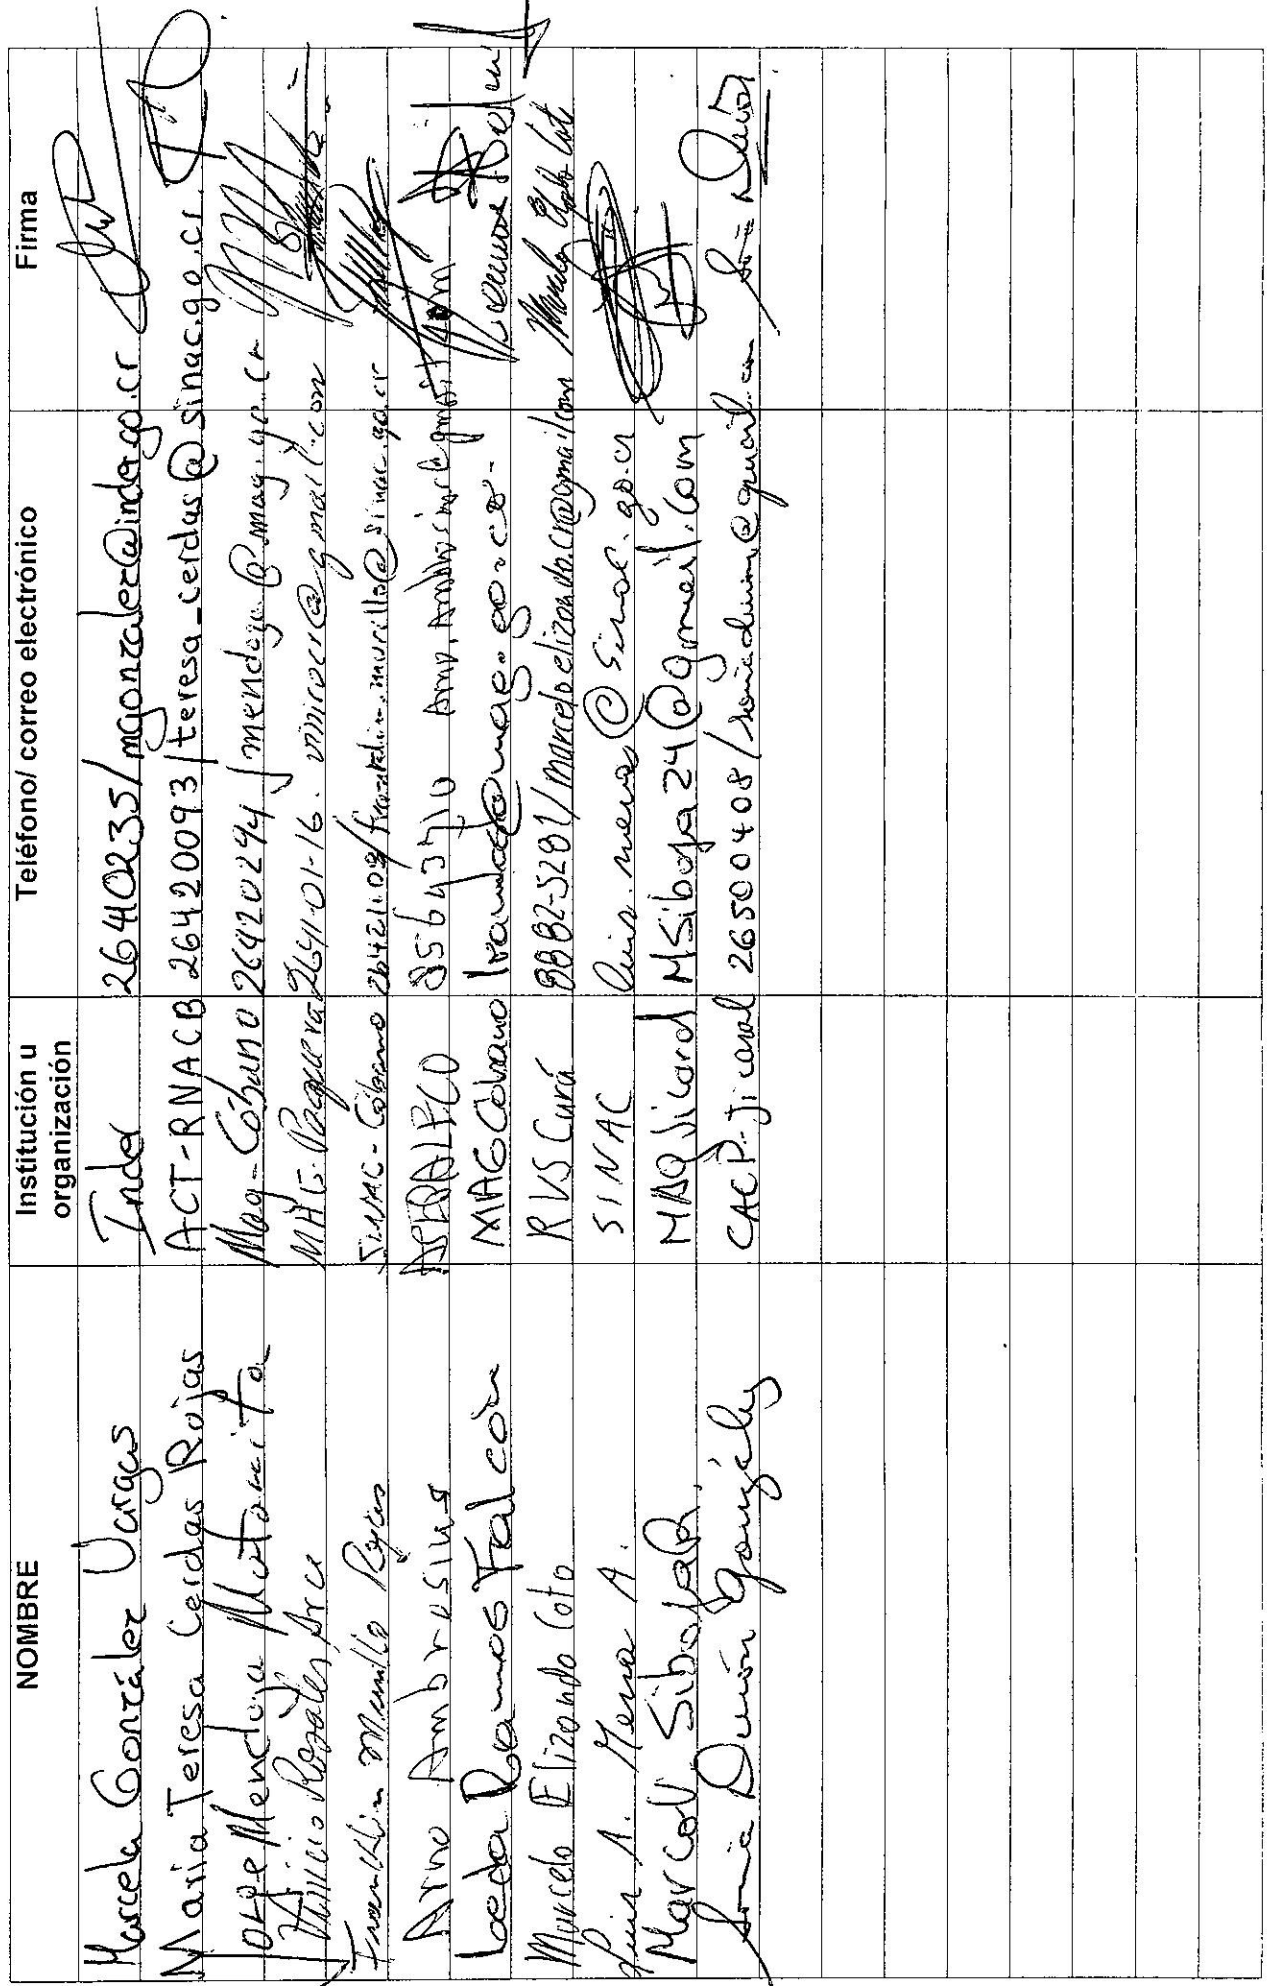 NOMBRE Institución u organización Teléfono/ correo electrónico Firma
Marcela González Vargas Inder 26410235/mgonzalez@inder.go.cr
Maria Teresa Cerdas Rojas ACT-RNACB 26420093/teresa_cerdas@sinac.go.cr
Jorge Mendoza Matarrita Mag-Cóbano 26420294/jmendoza@mag.go.cr
Vinicio Rosales Arce MAG-Paquera 2641-01-16.
Franklin Murillo Rojas SINAC-Cóbano franklin.murillo@sinac.go.cr
Arno Ambrosius
Leeda Ramos Falcón MAG Cóbano
Marcelo Elizondo Coto RVS Curú 8882-5281/marceloelizondo.cr@gmail.com Marcelo Elizdo Coto
Luis A. Mena A. SINAC luis.mena@sinac.go.cr
Marco V. Siboja R. MAG Jicaral MSiboja24@gmail.com
Sonia Durón González CACP-Jicaral 26500408/soniaduron@gmail.com Sonia Durón